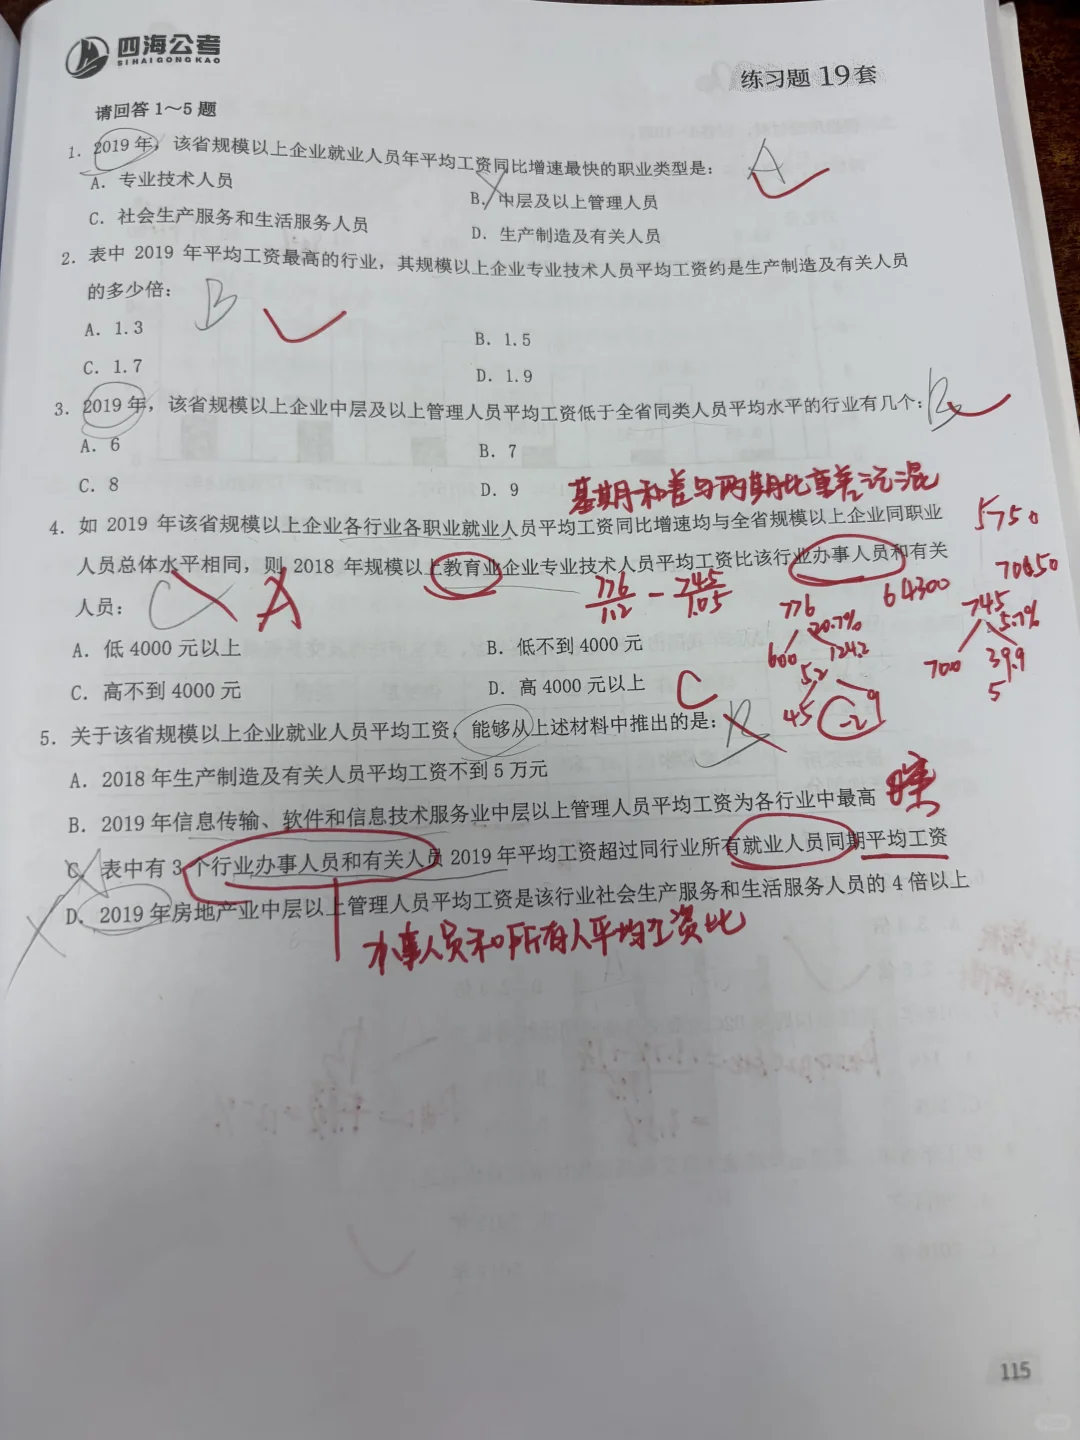 四海公考
SIHAIGONGKAO
练习题 19套
请回答 1～5 题
1. 2019 年，该省规模以上企业就业人员年平均工资同比增速最快的职业类型是：
A
A. 专业技术人员
B. 中层及以上管理人员
C. 社会生产服务和生活服务人员
D. 生产制造及有关人员
2. 表中 2019 年平均工资最高的行业，其规模以上企业专业技术人员平均工资约是生产制造及有关人员
的多少倍：
B
A. 1.3
B. 1.5
C. 1.7
D. 1.9
3. 2019 年，该省规模以上企业中层及以上管理人员平均工资低于全省同类人员平均水平的行业有几个：
B
A. 6
B. 7
C. 8
D. 9
基期和差与两期比重差沉混
4. 如 2019 年该省规模以上企业各行业各职业就业人员平均工资同比增速均与全省规模以上企业同职业
5750
人员总体水平相同，则 2018 年规模以上教育业企业专业技术人员平均工资比该行业办事人员和有关
70650
人员：
C A
776/1.2 - 745/1.05
64300
776
20.7%
600
124.2
745
5.7%
700
39.9
5
A. 低 4000 元以上
B. 低不到 4000 元
C. 高不到 4000 元
D. 高 4000 元以上
C
5.2
45
-2
9
5. 关于该省规模以上企业就业人员平均工资，能够从上述材料中推出的是：
B
A. 2018 年生产制造及有关人员平均工资不到 5 万元
B. 2019 年信息传输、软件和信息技术服务业中层以上管理人员平均工资为各行业中最高
C. 表中有 3 个行业办事人员和有关人员 2019 年平均工资超过同行业所有就业人员同期平均工资
D. 2019 年房地产业中层以上管理人员平均工资是该行业社会生产服务和生活服务人员的 4 倍以上
办事人员和所有人平均工资比
115